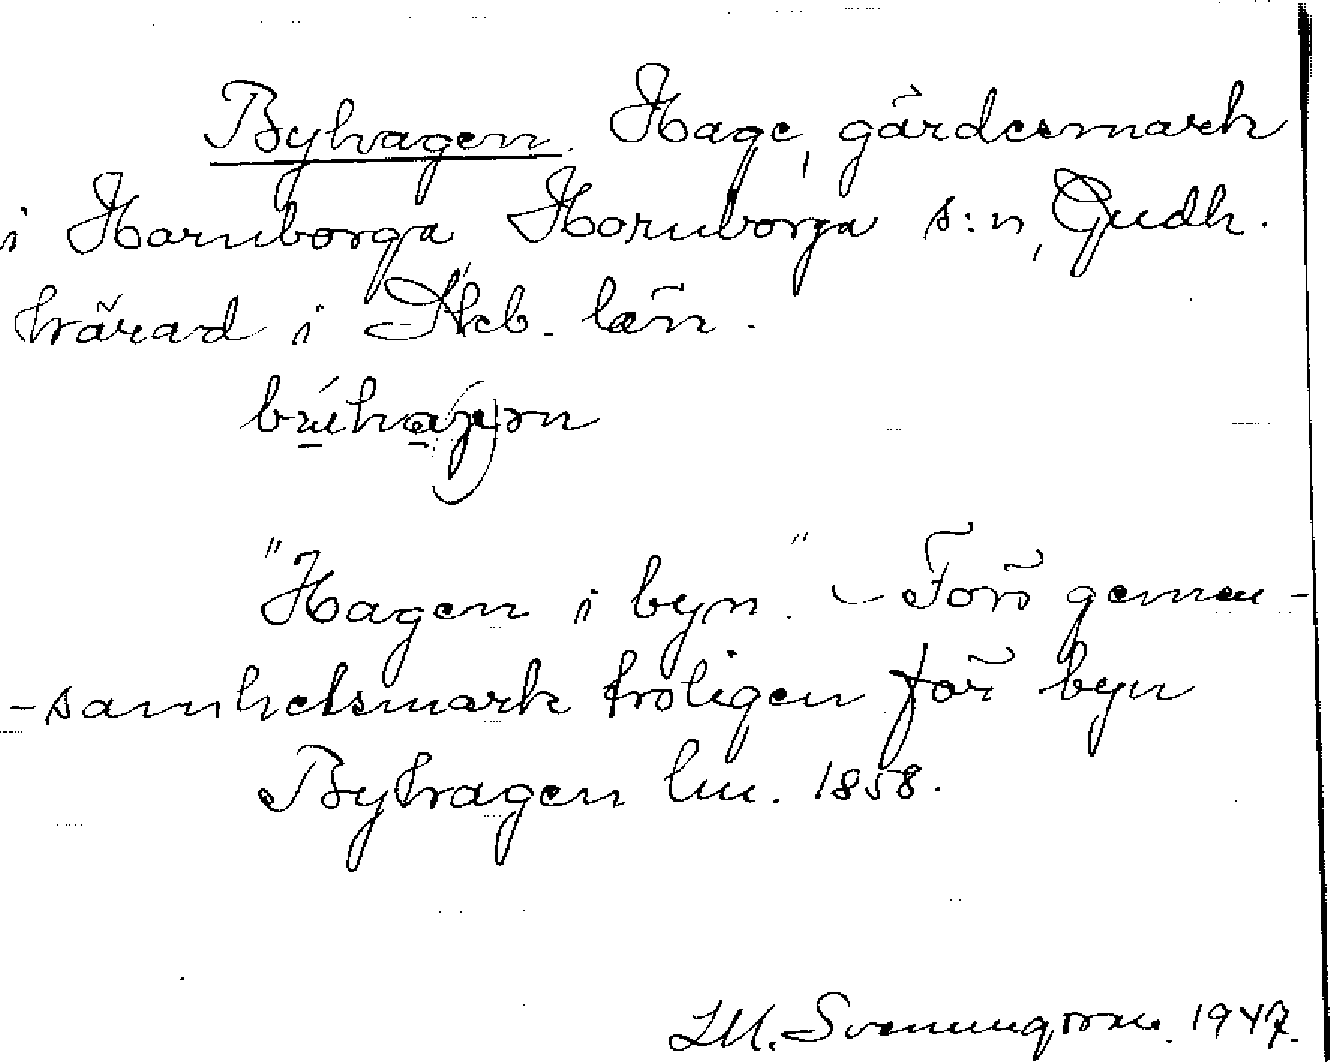 Byhagen. Hage, gärdesmark
i Hornborga, Hornborga s:n, Gudh.
härad i Skb. län.
"Hagen i byn." – Förs gemen-
-samhetsmark troligen för byn
Byhagen lm. 1858.
1947.